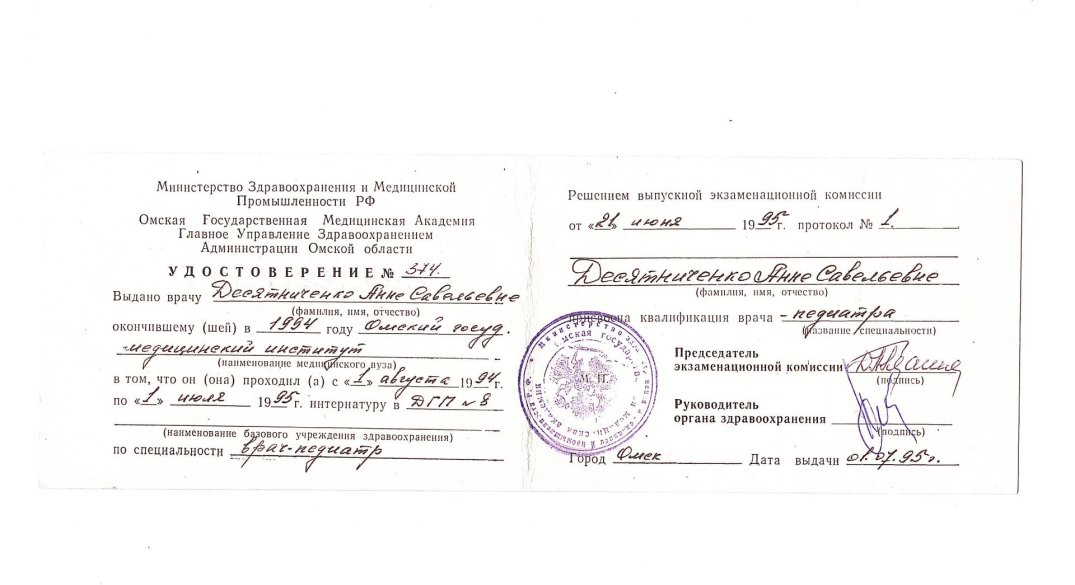 Министерство Здравоохранения и Медицинской
Промышленности РФ
Омская Государственная Медицинская Академия
Главное Управление Здравоохранением
Администрации Омской области
УДОСТОВЕРЕНИЕ № 374.
Выдано врачу Десятниченко Анне Савельевне
(фамилия, имя, отчество)
окончившему (шей) в 1994 году Омский госуд.
медицинский институт
(наименование медицинского вуза)
в том, что он (она) проходил (а) с «1» августа 1994г.
по «1» июля 1995г. интернатуру в ДГП №8
(наименование базового учреждения здравоохранения)
по специальности врач-педиатр
Решением выпускной экзаменационной комиссии
от «21» июня 1995г. протокол № 1.
Десятниченко Анне Савельевне
(фамилия, имя, отчество)
присвоена квалификация врача - педиатра
(название специальности)
Председатель
экзаменационной комиссии
(подпись)
М. П.
Руководитель
органа здравоохранения
(подпись)
Город Омск Дата выдачи 01.07.95г.